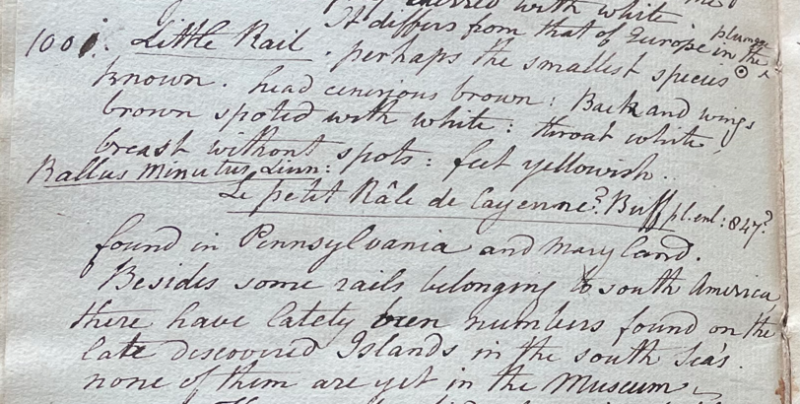 with white
It differs from that of Europe in the plumage
1001. Little Rail. perhaps the smallest species
known. head cenerious brown: Back and wings
brown spoted with white: throat white,
breast without spots: feet yellowish.
Rallus Minutus Linn:
Le petit Râle de Cayenne? Buff pl. enl: 847?
found in Pennsylvania and Maryland.
Besides some rails belonging to south America,
there have lately been numbers found on the
late discovered Islands in the south Sea's.
none of them are yet in the Museum